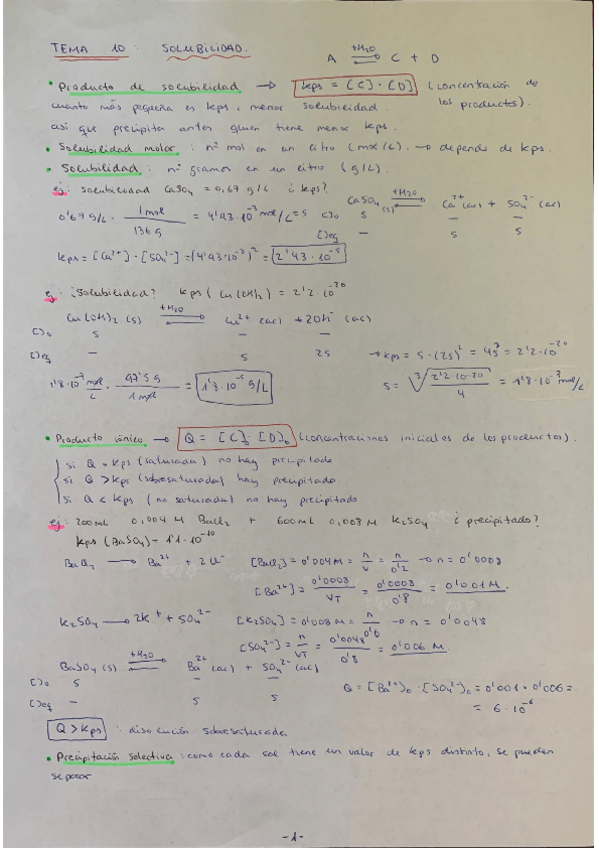 TEMA 10 : SOLUBILIDAD.
A ⇌ (+H₂O) C + D
• Producto de solubilidad → Kps = [C]·[D] (concentración de los productos).
cuanto más pequeña es Kps, menor solubilidad.
así que precipita antes quien tiene menor Kps.
• Solubilidad molar : nº mol en un litro (mol/L). → depende de Kps.
• Solubilidad : nº gramos en un litro (g/L).
ej: solubilidad CaSO₄ = 0,67 g/L ¿Kps?
CaSO₄ (s) ⇌ (+H₂O) Ca²⁺ (ac) + SO₄²⁻ (ac)
0'67 g/L · 1 mol / 136 g = 4'93·10⁻³ mol/L = s
[ ]₀ s — —
[ ]eq — s s
Kps = [Ca²⁺]·[SO₄²⁻] = (4'93·10⁻³)² = 2'43·10⁻⁵
ej: ¿Solubilidad? Kps (Cu(OH)₂) = 2'2·10⁻²⁰
Cu(OH)₂ (s) ⇌ (+H₂O) Cu²⁺ (ac) + 2OH⁻ (ac)
[ ]₀ s — —
[ ]eq — s 2s
→ Kps = s·(2s)² = 4s³ = 2'2·10⁻²⁰
s = ∛(2'2·10⁻²⁰ / 4) = 1'8·10⁻⁷ mol/L
1'8·10⁻⁷ mol/L · 97'5 g / 1 mol = 1'7·10⁻⁵ g/L
• Producto iónico → Q = [C]₀·[D]₀ (concentraciones iniciales de los productos).
si Q = Kps (saturada) no hay precipitado
si Q > Kps (sobresaturada) hay precipitado.
si Q < Kps (no saturada) no hay precipitado.
ej: 200mL 0,004 M BaCl₂ + 600mL 0,008 M K₂SO₄ ¿precipitado?
Kps (BaSO₄) = 1'1·10⁻¹⁰
BaCl₂ → Ba²⁺ + 2Cl⁻ [BaCl₂] = 0'004 M = n/V = n/0'2 → n = 0'0008
[Ba²⁺] = 0'0008/VT = 0'0008/0'8 = 0'001 M.
K₂SO₄ → 2K⁺ + SO₄²⁻ [K₂SO₄] = 0'008 M = n/0'6 → n = 0'0048
[SO₄²⁻] = n/VT = 0'0048/0'8 = 0'006 M.
BaSO₄ (s) ⇌ (+H₂O) Ba²⁺ (ac) + SO₄²⁻ (ac)
[ ]₀ s — —
[ ]eq — s s
Q = [Ba²⁺]₀·[SO₄²⁻]₀ = 0'001·0'006 =
= 6·10⁻⁶
Q > Kps : disolución sobresaturada
• Precipitación selectiva : como cada sal tiene un valor de Kps distinto, se pueden
separar
-1-